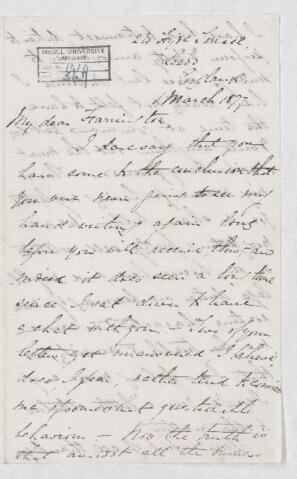 McGILL UNIVERSITY
Leeds
England
March 187
My dear Farrington
I dare say that you
have come to the conclusion that
you were never going to see my
hand writing again long
before you will receive this – and
indeed it does seem a long time
since I sat down to have
a chat with you. Two of your
letters yet unanswered I believe,
does I fear, rather tend to convict
me of somewhat questionable
behaviour – Now the truth is
that almost all the